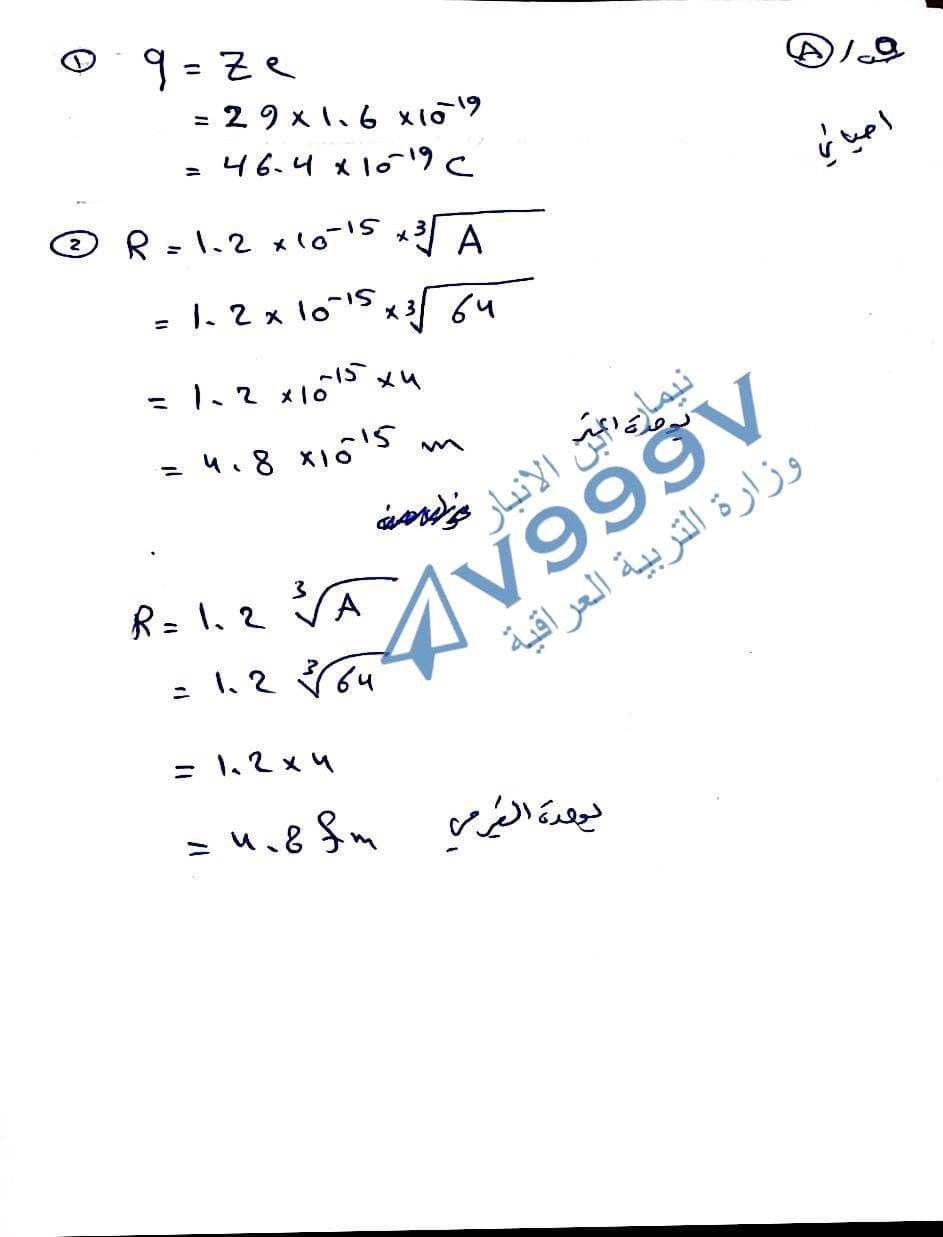 س١/ Ⓐ
احيائي
① q = Z e
= 29 × 1.6 × 10⁻¹⁹
= 46.4 × 10⁻¹⁹ C
② R = 1.2 × 10⁻¹⁵ × ³√A
= 1.2 × 10⁻¹⁵ × ³√64
= 1.2 × 10⁻¹⁵ × 4
= 4.8 × 10⁻¹⁵ m بوحدة المتر
R = 1.2 ³√A
= 1.2 ³√64
= 1.2 × 4
= 4.8 fm بوحدة الفيرمي
نيمار ابن الانبار
V999V
وزارة التربية العراقية